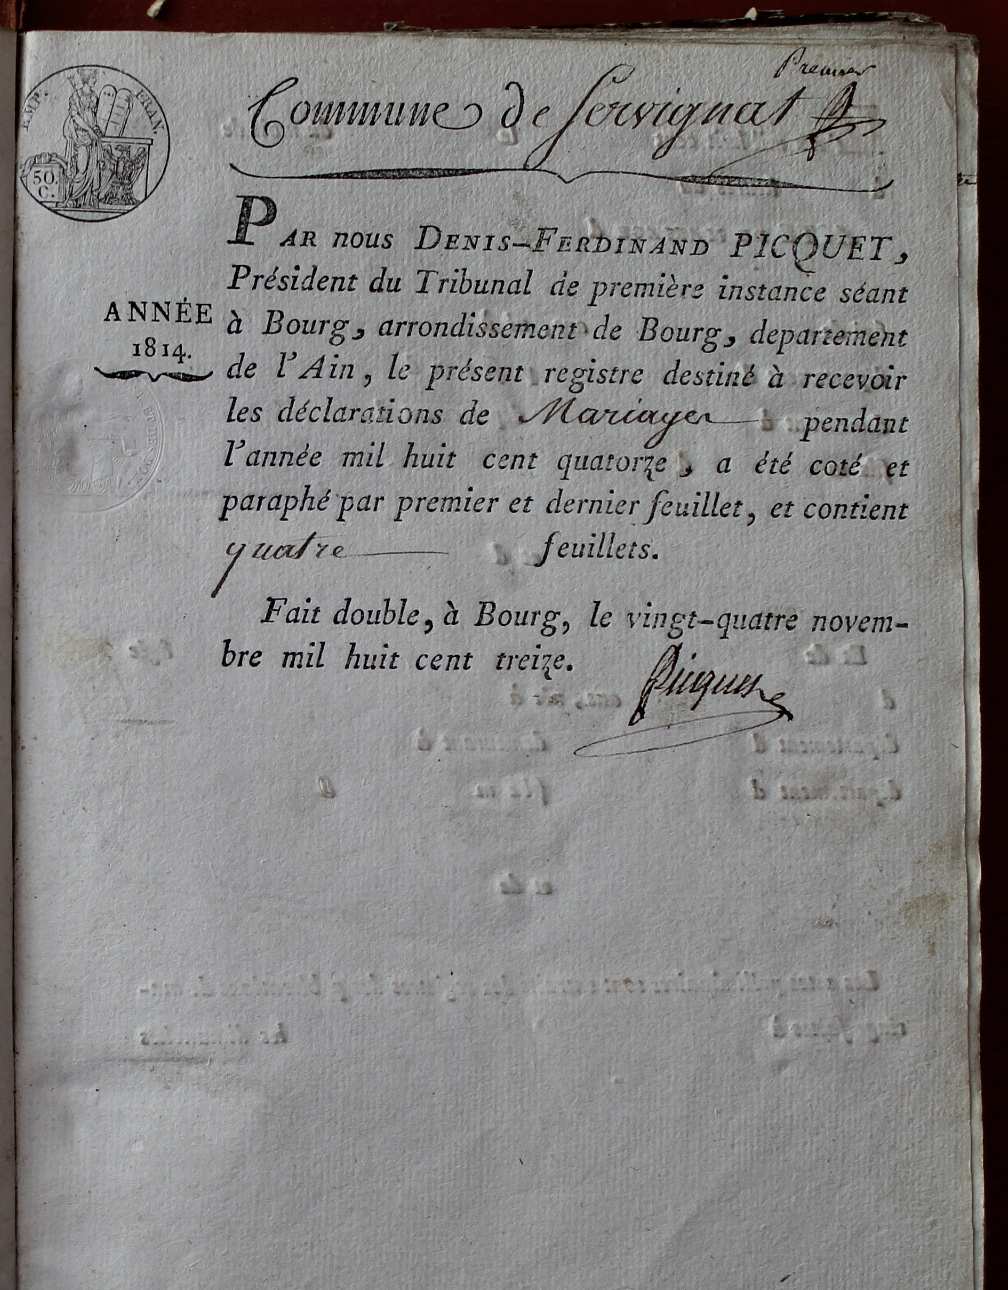 Premier
Commune de Servignat
EMP. FRAN.
50.
C.
PAR nous DENIS-FERDINAND PICQUET,
Président du Tribunal de première instance séant
à Bourg, arrondissement de Bourg, departement
de l'Ain, le présent registre destiné à recevoir
les déclarations de Mariages pendant
l'année mil huit cent quatorze, a été coté et
paraphé par premier et dernier feuillet, et contient
quatre feuillets.
ANNÉE
1814.
Fait double, à Bourg, le vingt-quatre novem-
bre mil huit cent treize.
Picquet